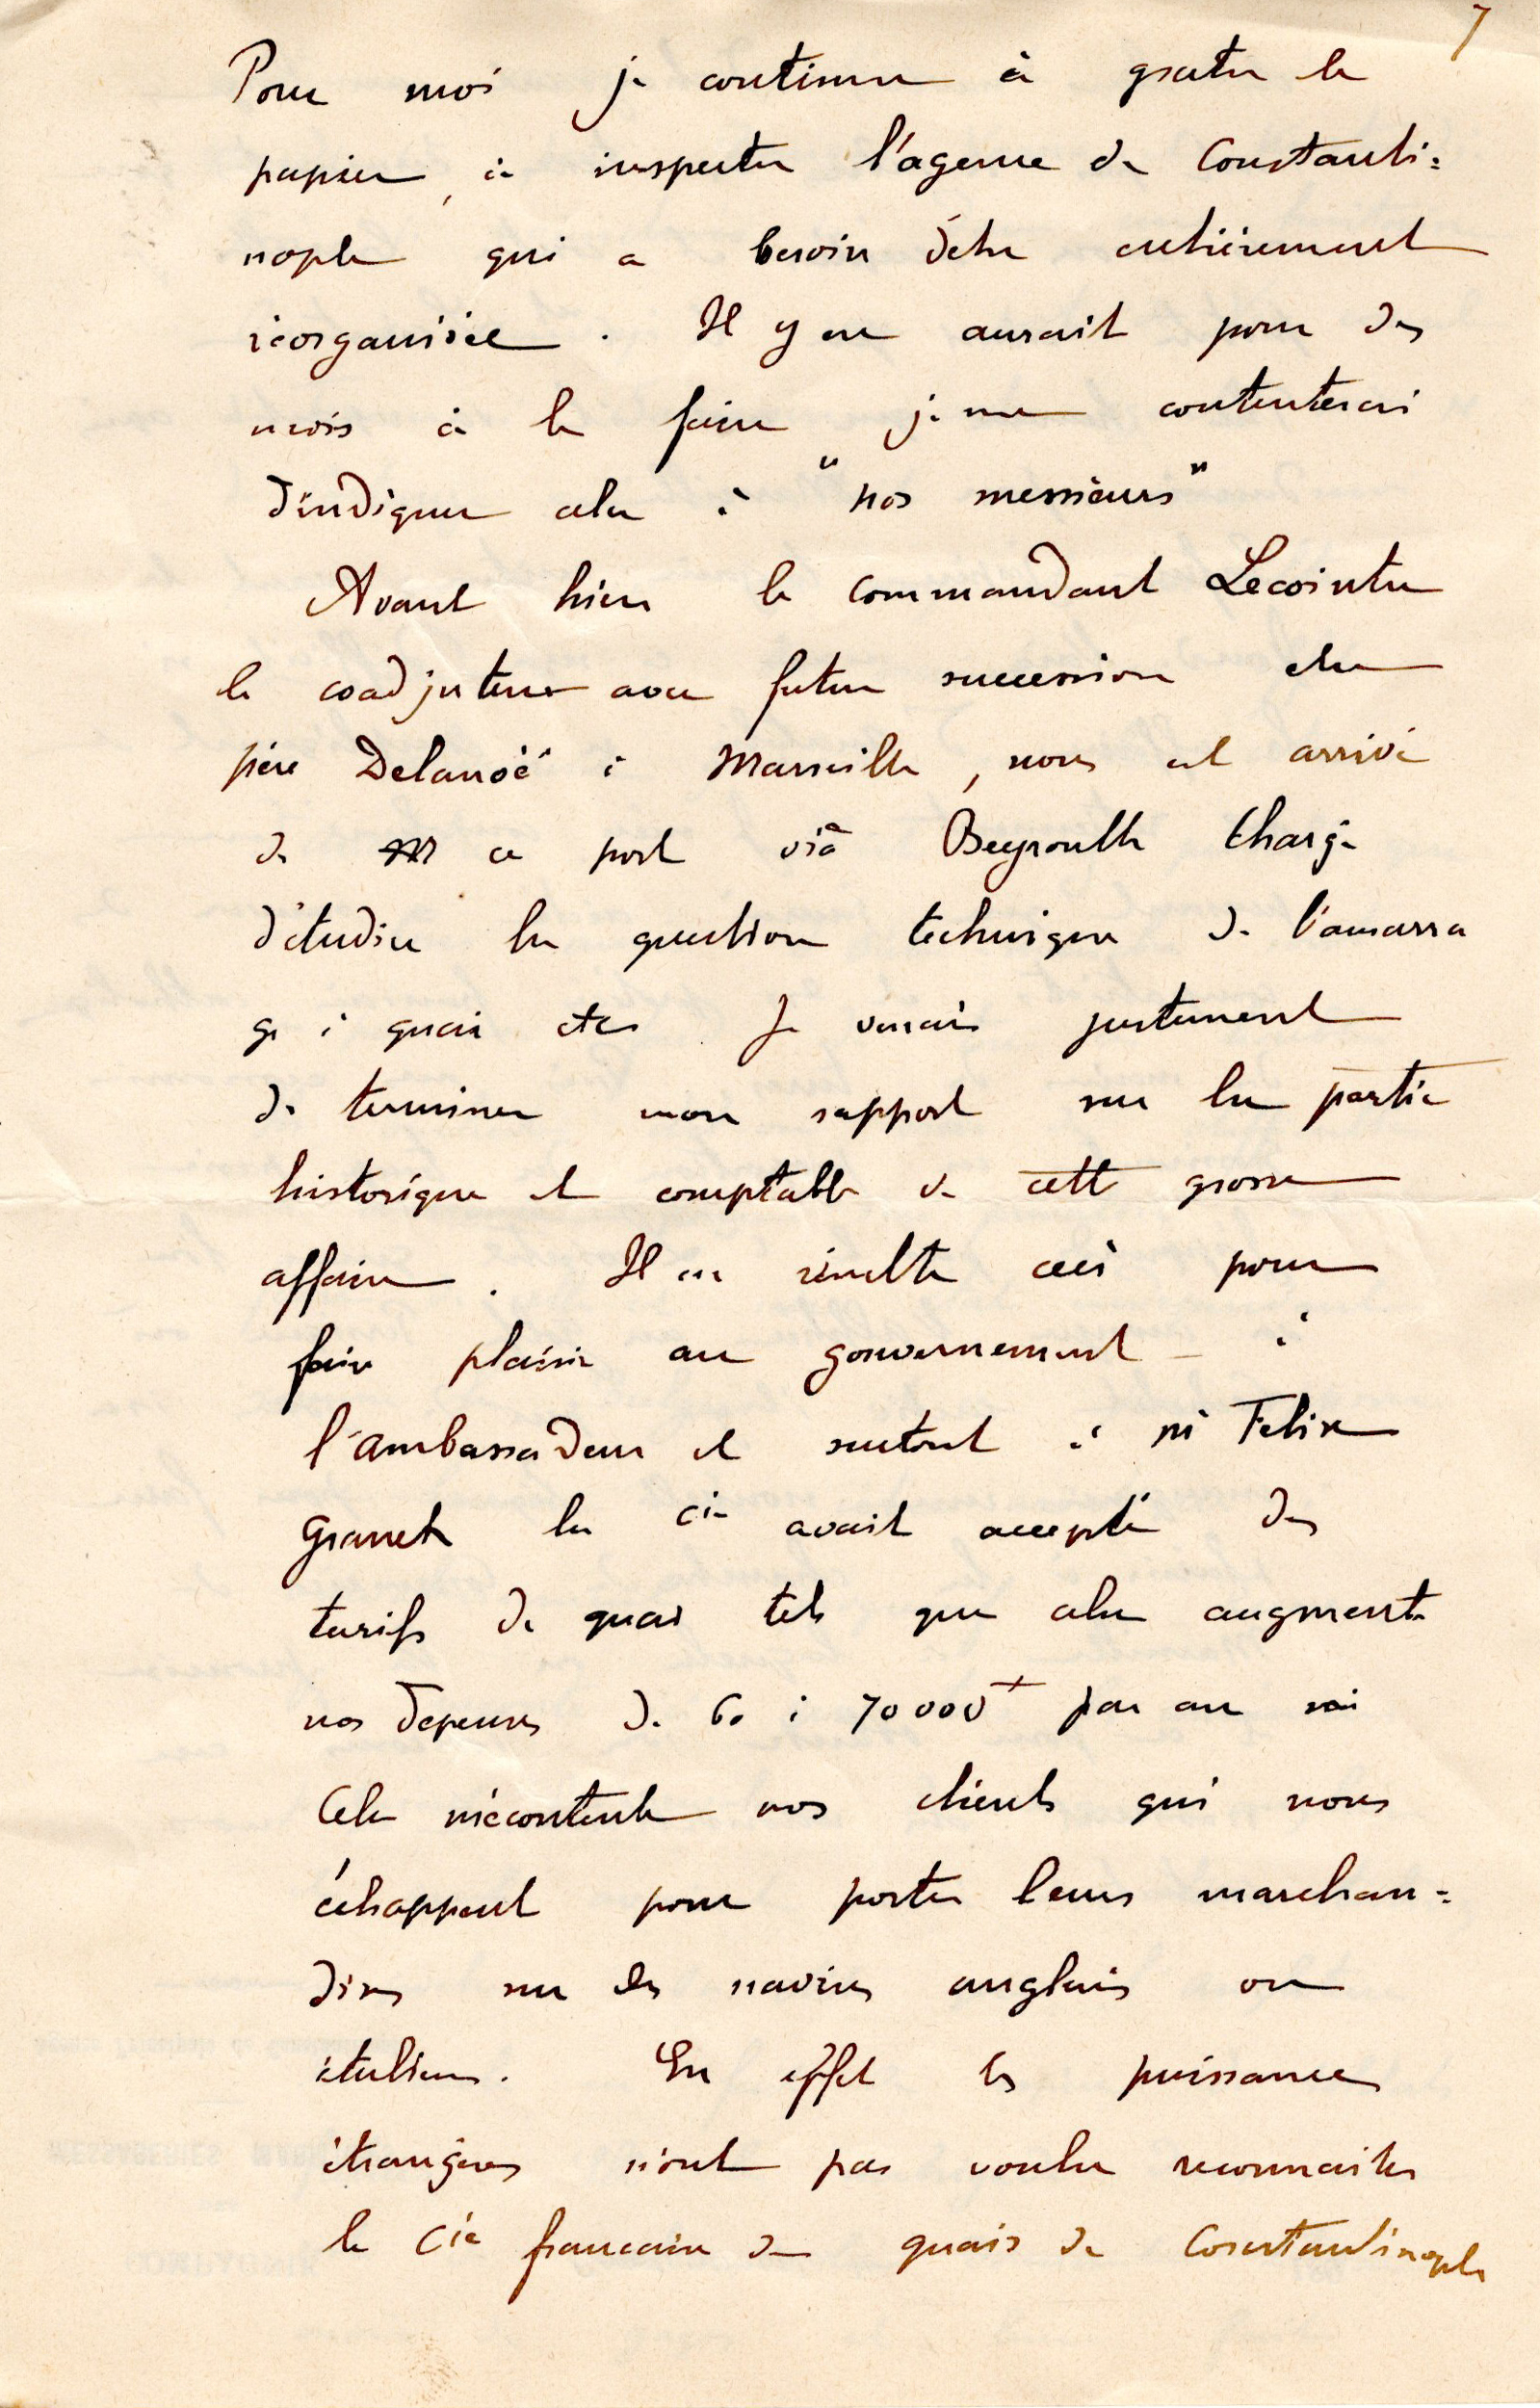 7
Pour moi je continue à gratter le
papier, à inspecter l'agence de Constanti=
nople qui a besoin d'être entièrement
réorganisée. Il y en aurait pour des
mois à le faire je me contenterai
d'indiquer cela à "nos messieurs"
Avant hier le commandant Lecointre
le coadjuteur avec future succession du
père Delanoë à Marseille, nous est arrivé
de ce port viâ Beyrouth chargé
d'étudier la question technique de l'amarra
ge à quai etc. Je venais justement
de terminer mon rapport sur la partie
historique et comptable de cette grosse
affaire. Il en résulte ceci pour
faire plaisir au gouvernement – à
l'ambassadeur et surtout à Mr Felix
Granet la Cie avait accepté des
tarifs de quai tels que cela augmente
nos depenses de 60 à 70000 par an
Cela mécontente nos clients qui nous
échappent pour porter leurs marchan=
dises sur des navires anglais ou
italiens. En effet les puissances
étrangères n'ont pas voulu reconnaitre
la Cie francaise des quais de Constantinople